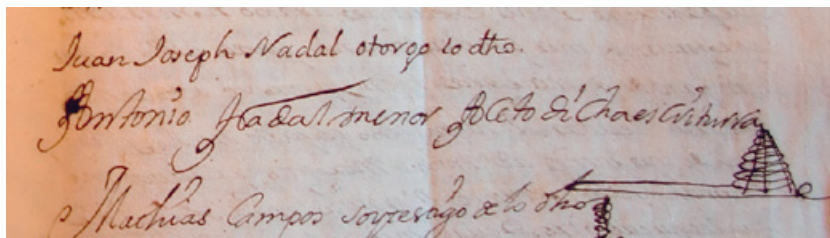 Juan Joseph Nadal otorgo lo dho.
Antonio Nadal menor Aceto dicha escritura
Mathias Campos soy testigo de lo dho